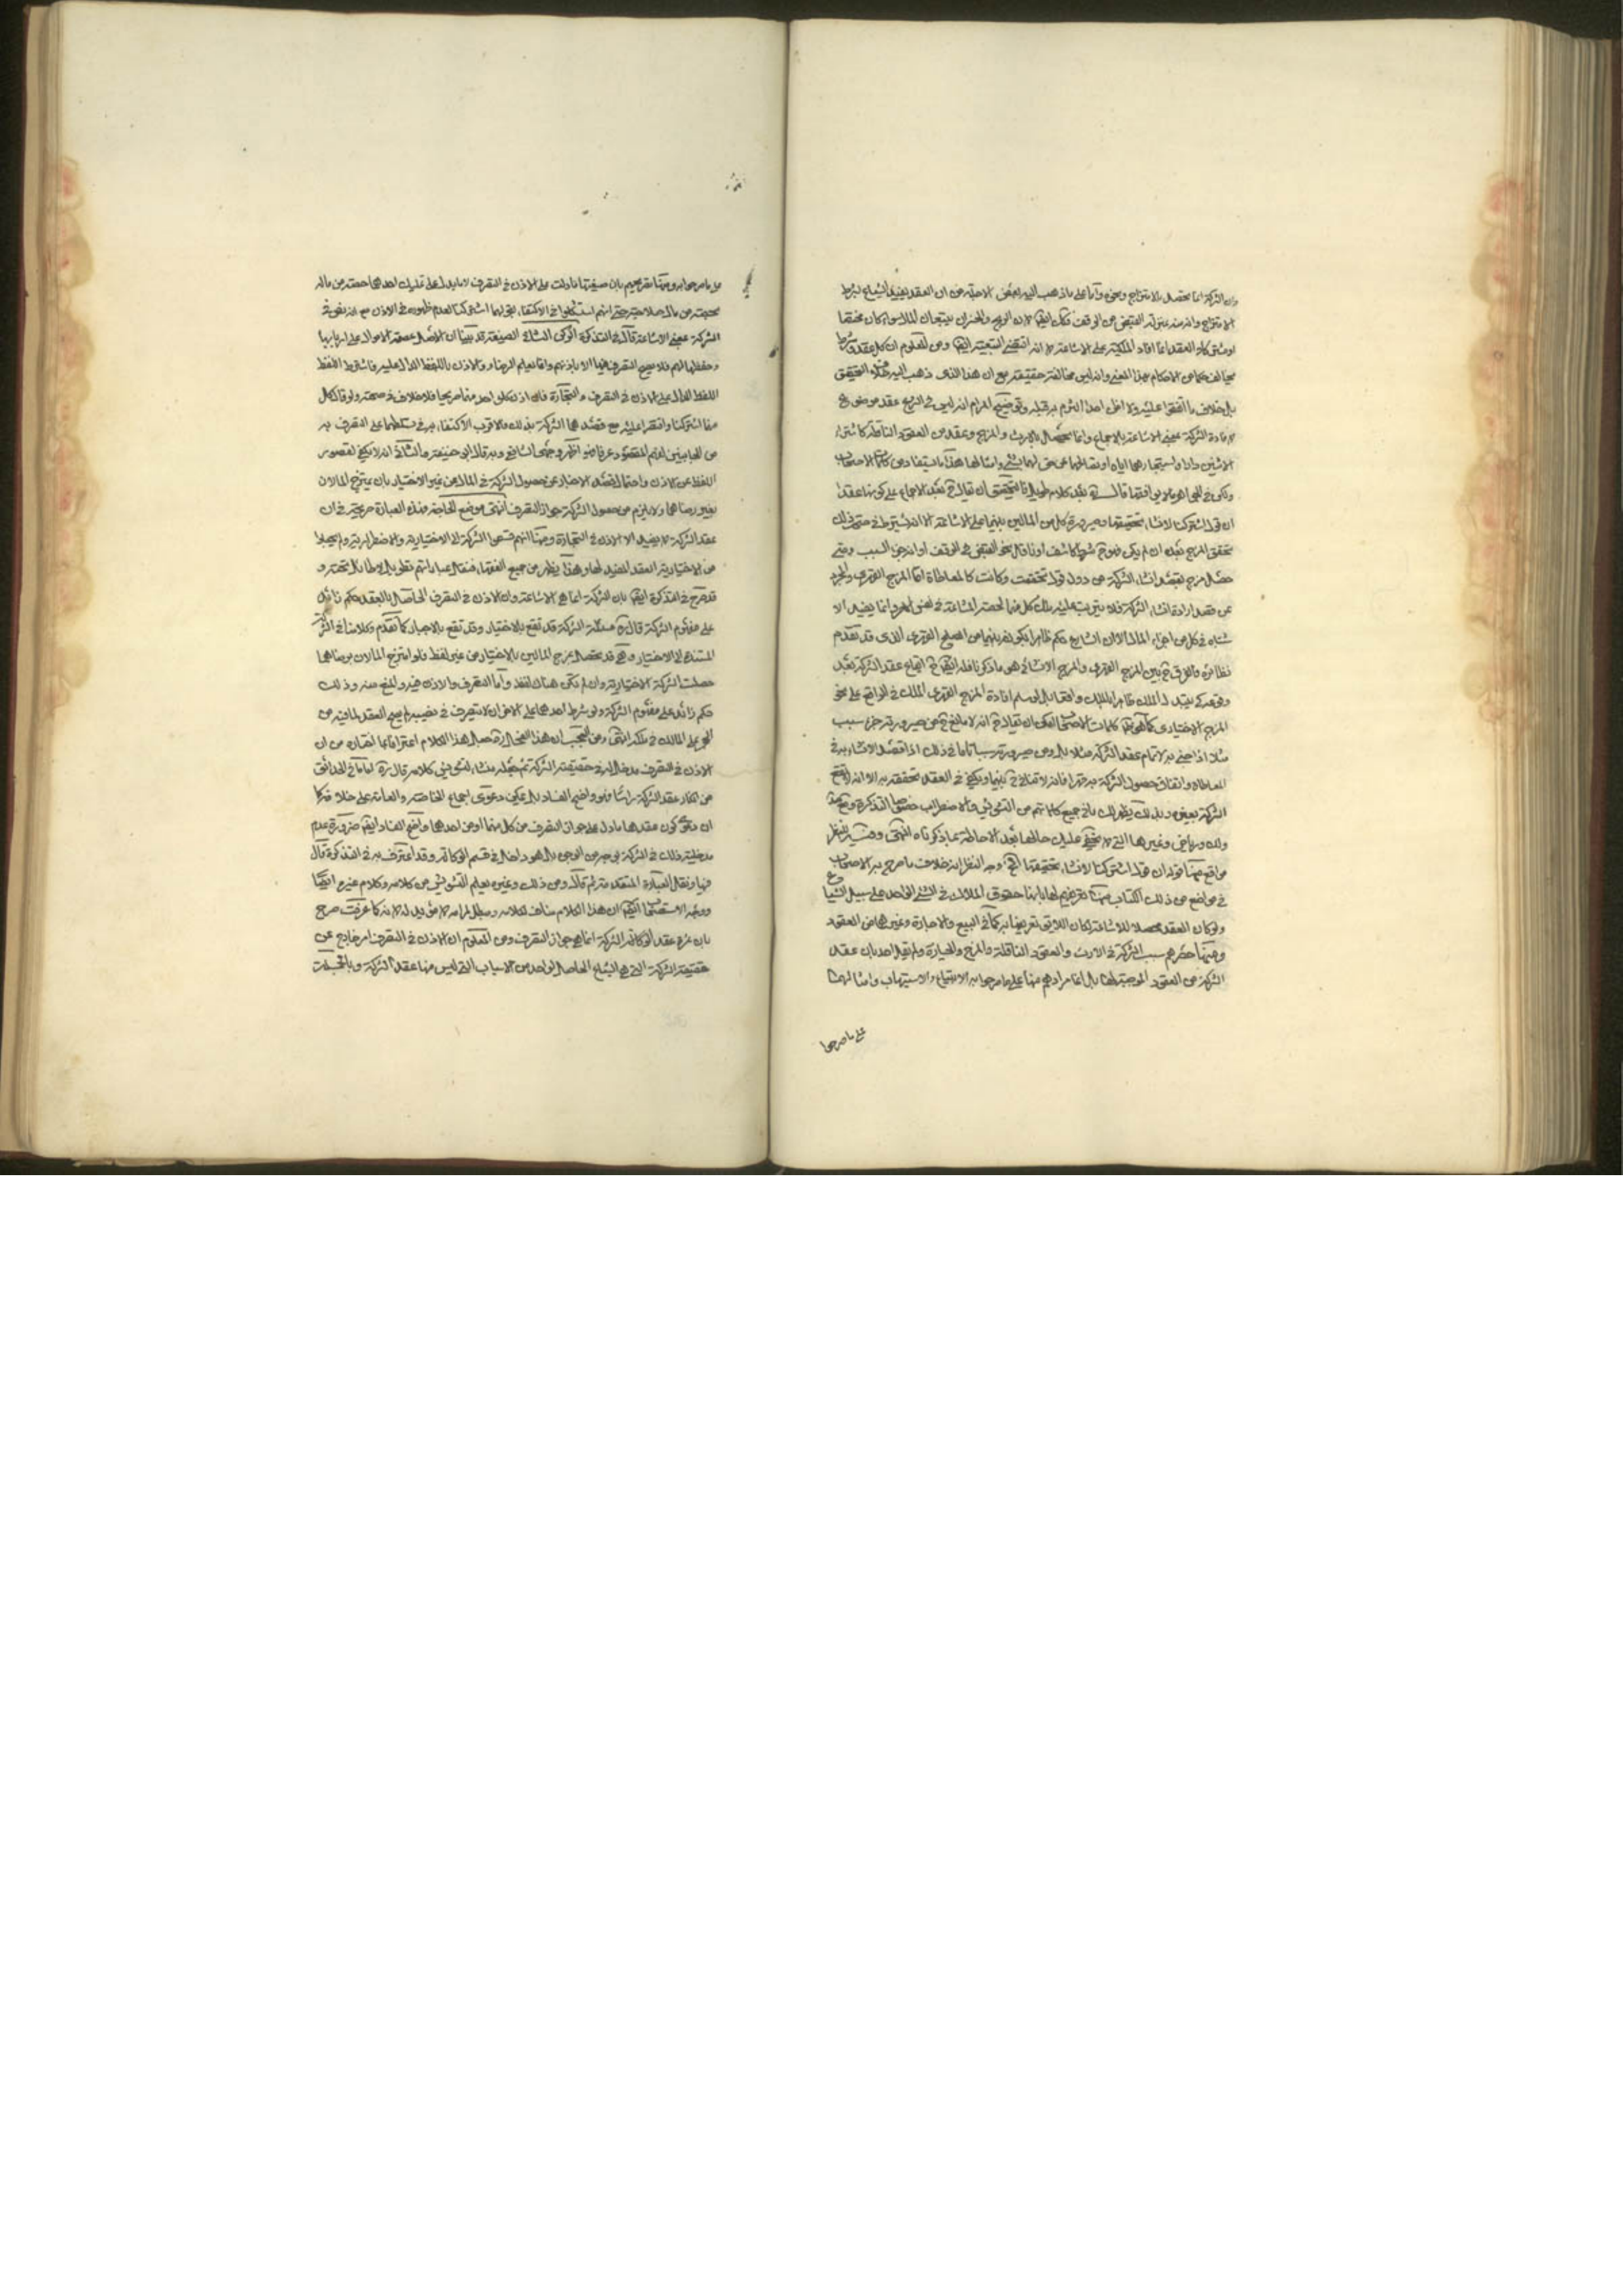 وان الشركة انما تحصل بالامتزاج ونحوه وأما على ما ذهب اليه بعض الاجلة من ان العقد يفيد الشياع بشرط
الامتزاج وانه منه بمنزلة القبض من الوقف فكك ايضا لان الربح والخسران يتبعان المال سواء كان مختلطا
العقد انما افاد الملكية على الاشاعة لا انه اقتضى التبعية ايضا ومن المعلوم ان كل عقد شرط
الاحكام بهذا المعنى وانه ليس مخالفة حقيقة مع ان هذا الذى ذهب اليه خلاف التحقيق
بل خلاف ما اتفقوا عليه ولا اظن احدا التزم به قبله وتوضيح المرام انه ليس فى الشرع عقد موضوع
لافادة الشركة بمعنى الاشاعة بالاجماع وانما تحصل بالارث والمزج وعقد من العقود الناقلة كاشتراء
الاثنين دارا واستيجارهما اياه او نقالهما عن حق لهما بشئ وامثالها هذا ما يستفاد من كلمات الاصحاب
ولكن فى الجواهر ما لا يوافقها قال بعد كلام طويل فالتحقيق ان يقال بعد الاجماع على كونها عقدا
ان قول اشتركنا لانشاء تحقيقها وصيرورة كل من المالين بينهما على الاشاعة الا انه يشترط فى صحة ذلك
تحقق المزج بعده ان لم يكن فهو ح شرط كاشف او ناقل نحو القبض فى الوقف او انه جزء السبب ومتى
حصل مزج بقصد انشاء الشركة من دون قول تحققت وكانت كالمعاطاة اما المزج القهرى والمجرد
عن قصد ارادة انشاء الشركة فلا يترتب عليه ملك كل منهما الحصة المشاعة فى نفس الامر وانما يفيد الا
شتباه فى كل من اجزاء المال الا ان الشارع حكم ظاهرا بكونه بينهما من الصلح القهرى الذى قد تقدم
نظائره فالفرق ح بين المزج القهرى والمزج الانشائى هو ما ذكرناه ايضا ح اجتماع عقد الشركة بعد
وقوعه كى يفيد الملك ظاهرا الملك واقعا بل لو سلم افادة المزج القهرى الملك فى الواقع على نحو
المزج الاختيارى كما هو ظاهر كلمات الاصحاب امكن ان يقال ح انه لا مانع ح من صيرورته جزء سبب
مثلا اذا جئ به لاتمام عقد الشركة مثلا بل ومن صيرورته سببا تاما فى ذلك اذا قصد الانشاء به فى
المعاطاة واتفاق حصول الشركة به قهرا فانه لا تنافى ح بينهما ويكفى فى العقد تحققه به الا انه اوقع
الشركة بعوض وبذلك يظهر لك ما فى جميع كلماتهم من التشويش والاضطراب خصوصا التذكرة وجامع المقاصد
ولك ورياض وغيرها التى لا يخفى عليك حالها بعد الاحاطة بما ذكرناه انتهى وفيه للنظر
مواقع منها قوله ان قول اشتركنا لانشاء تحقيقها الخ وجه النظر انه خلاف ما صرح به الاصحاب
فى مواضع من ذلك الكتاب منها تعريفهم لها بانها حقوق الملاك فى الشئ الواحد على سبيل الشياع
ولو كان العقد محصلا للاشاعة لكان اللايق تعريفها به كما فى البيع والاجارة وغيرهما من العقود
ومنها حصرهم سبب الشركة فى الارث والعقود الناقلة والمزج والحيازة ولم يقل احد بان عقد
الشركة من العقود الموجبة لها بل انما مرادهم منها على ما صرحوا به الابتياع والاستيهاب وامثالهما
على ما صرحوا
على ما صرحوا به ومنها تصريحهم بان صيغتها ما دلت على الاذن فى التصرف لا ما يدل على تمليك احدهما حصته من ماله
بحصته من مال صاحبه حتى انهم استشكلوا فى الاكتفاء بقولهما اشتركنا لعدم ظهوره فى الاذن مع انه نص فى
الشركة بمعنى الاشاعة قال فى التذكرة الركن الثالث الصيغة قد بينا ان الاصل عصمة الاموال على اربابها
وحفظها لهم فلا يصح التصرف فيها الا باذنهم وانما يعلم الرضا والاذن باللفظ الدال عليه فاشترط اللفظ
اللفظ الدال على الاذن فى التصرف والتجارة فان اذن كل واحد منهما صريحا فلا خلاف فى صحته ولو قال كل
منهما اشتركنا واقتصرا عليه مع قصدهما الشركة بذلك فالاقرب الاكتفاء به فى تسلطهما على التصرف به
من الجانبين لفهم المقصود عرفا وهو اظهر وجهى الشافعى وبه قال ابو حنيفة والثانى انه لا يكفى لقصور
اللفظ عن الاذن واحتمال قصد الاخبار عن حصول الشركة فى المال من غير الاختيار بان يمتزج المالان
بغير رضاهما ولا يلزم من حصول الشركة جواز التصرف انتهى موضع الحاجة فهذه العبارة صريحة فى ان
عقد الشركة لا يفيد الا الاذن فى التجارة ومنها انهم قسموا الشركة الى الاختيارية والاضطرارية ولم يجعلوا
من الاختيارية العقد المفيد لها وهذا يظهر من جميع الفقهاء فنقل عباراتهم تطويل بلا طائل تحته و
قد صرح فى التذكرة ايضا بان الشركة انما هى الاشاعة وان الاذن فى التصرف الحاصل بالعقد حكم زائد
على مفهوم الشركة قال مسئلة الشركة قد تقع بالاختيار وقد تقع بالاجبار كما تقدم وكلامنا فى الشركة
المستندة الى الاختيار وهى قد تحصل بمزج المالين بالاختيار من غير لفظ فلو امتزج المالان برضاهما
حصلت الشركة الاختيارية وان لم يكن هناك لفظ واما التصرف والاذن فيه والمنع منه وذلك
حكم زائد على مفهوم الشركة ولو شرط احدهما على الاخر ان لا يتصرف فى نصيبه لم يصح العقد لما فيه من
الحجر على المالك فى ملكه انتهى ومن العجب ان هذا جعل هذا الكلام اعترافا بما اتفقا من ان
الاذن فى التصرف مدخل له فى حقيقة الشركة ثم جعله منشاء لتشويش كلامه قال ره اما ما فى الحدائق
من انكار عقد الشركة راسا فهو واضح الفساد بل يمكن دعوى اجماع الخاصة والعامة على خلافه كما
ان دعوى كون عقدها ما دل على جواز التصرف من كل منهما او من احدهما واضح الفساد ايضا ضرورة عدم
مدخلية ذلك فى الشركة بوجه من الوجوه بل هو داخل فى قسم الوكالة وقد اعترف به فى التذكرة قال
فيها ونقل العبارة المتقدمة ثم قال ومن ذلك وغيره يعلم التشويش من كلامه وكلام غيره ايضا
ووجه الاستعجاب ايضا ان هذا الكلام مناف لكلامه ومبطل لمرامه لا مؤيد له لانه كما عرفت صرح
بان ثمرة عقد الوكالة الشركة انما هو جواز التصرف ومن المعلوم ان الاذن فى التصرف امر خارج عن
حقيقة الشركة التى هى الشياع الحاصل لواحد من الاسباب التى ليس منها عقد الشركة وبالجملة